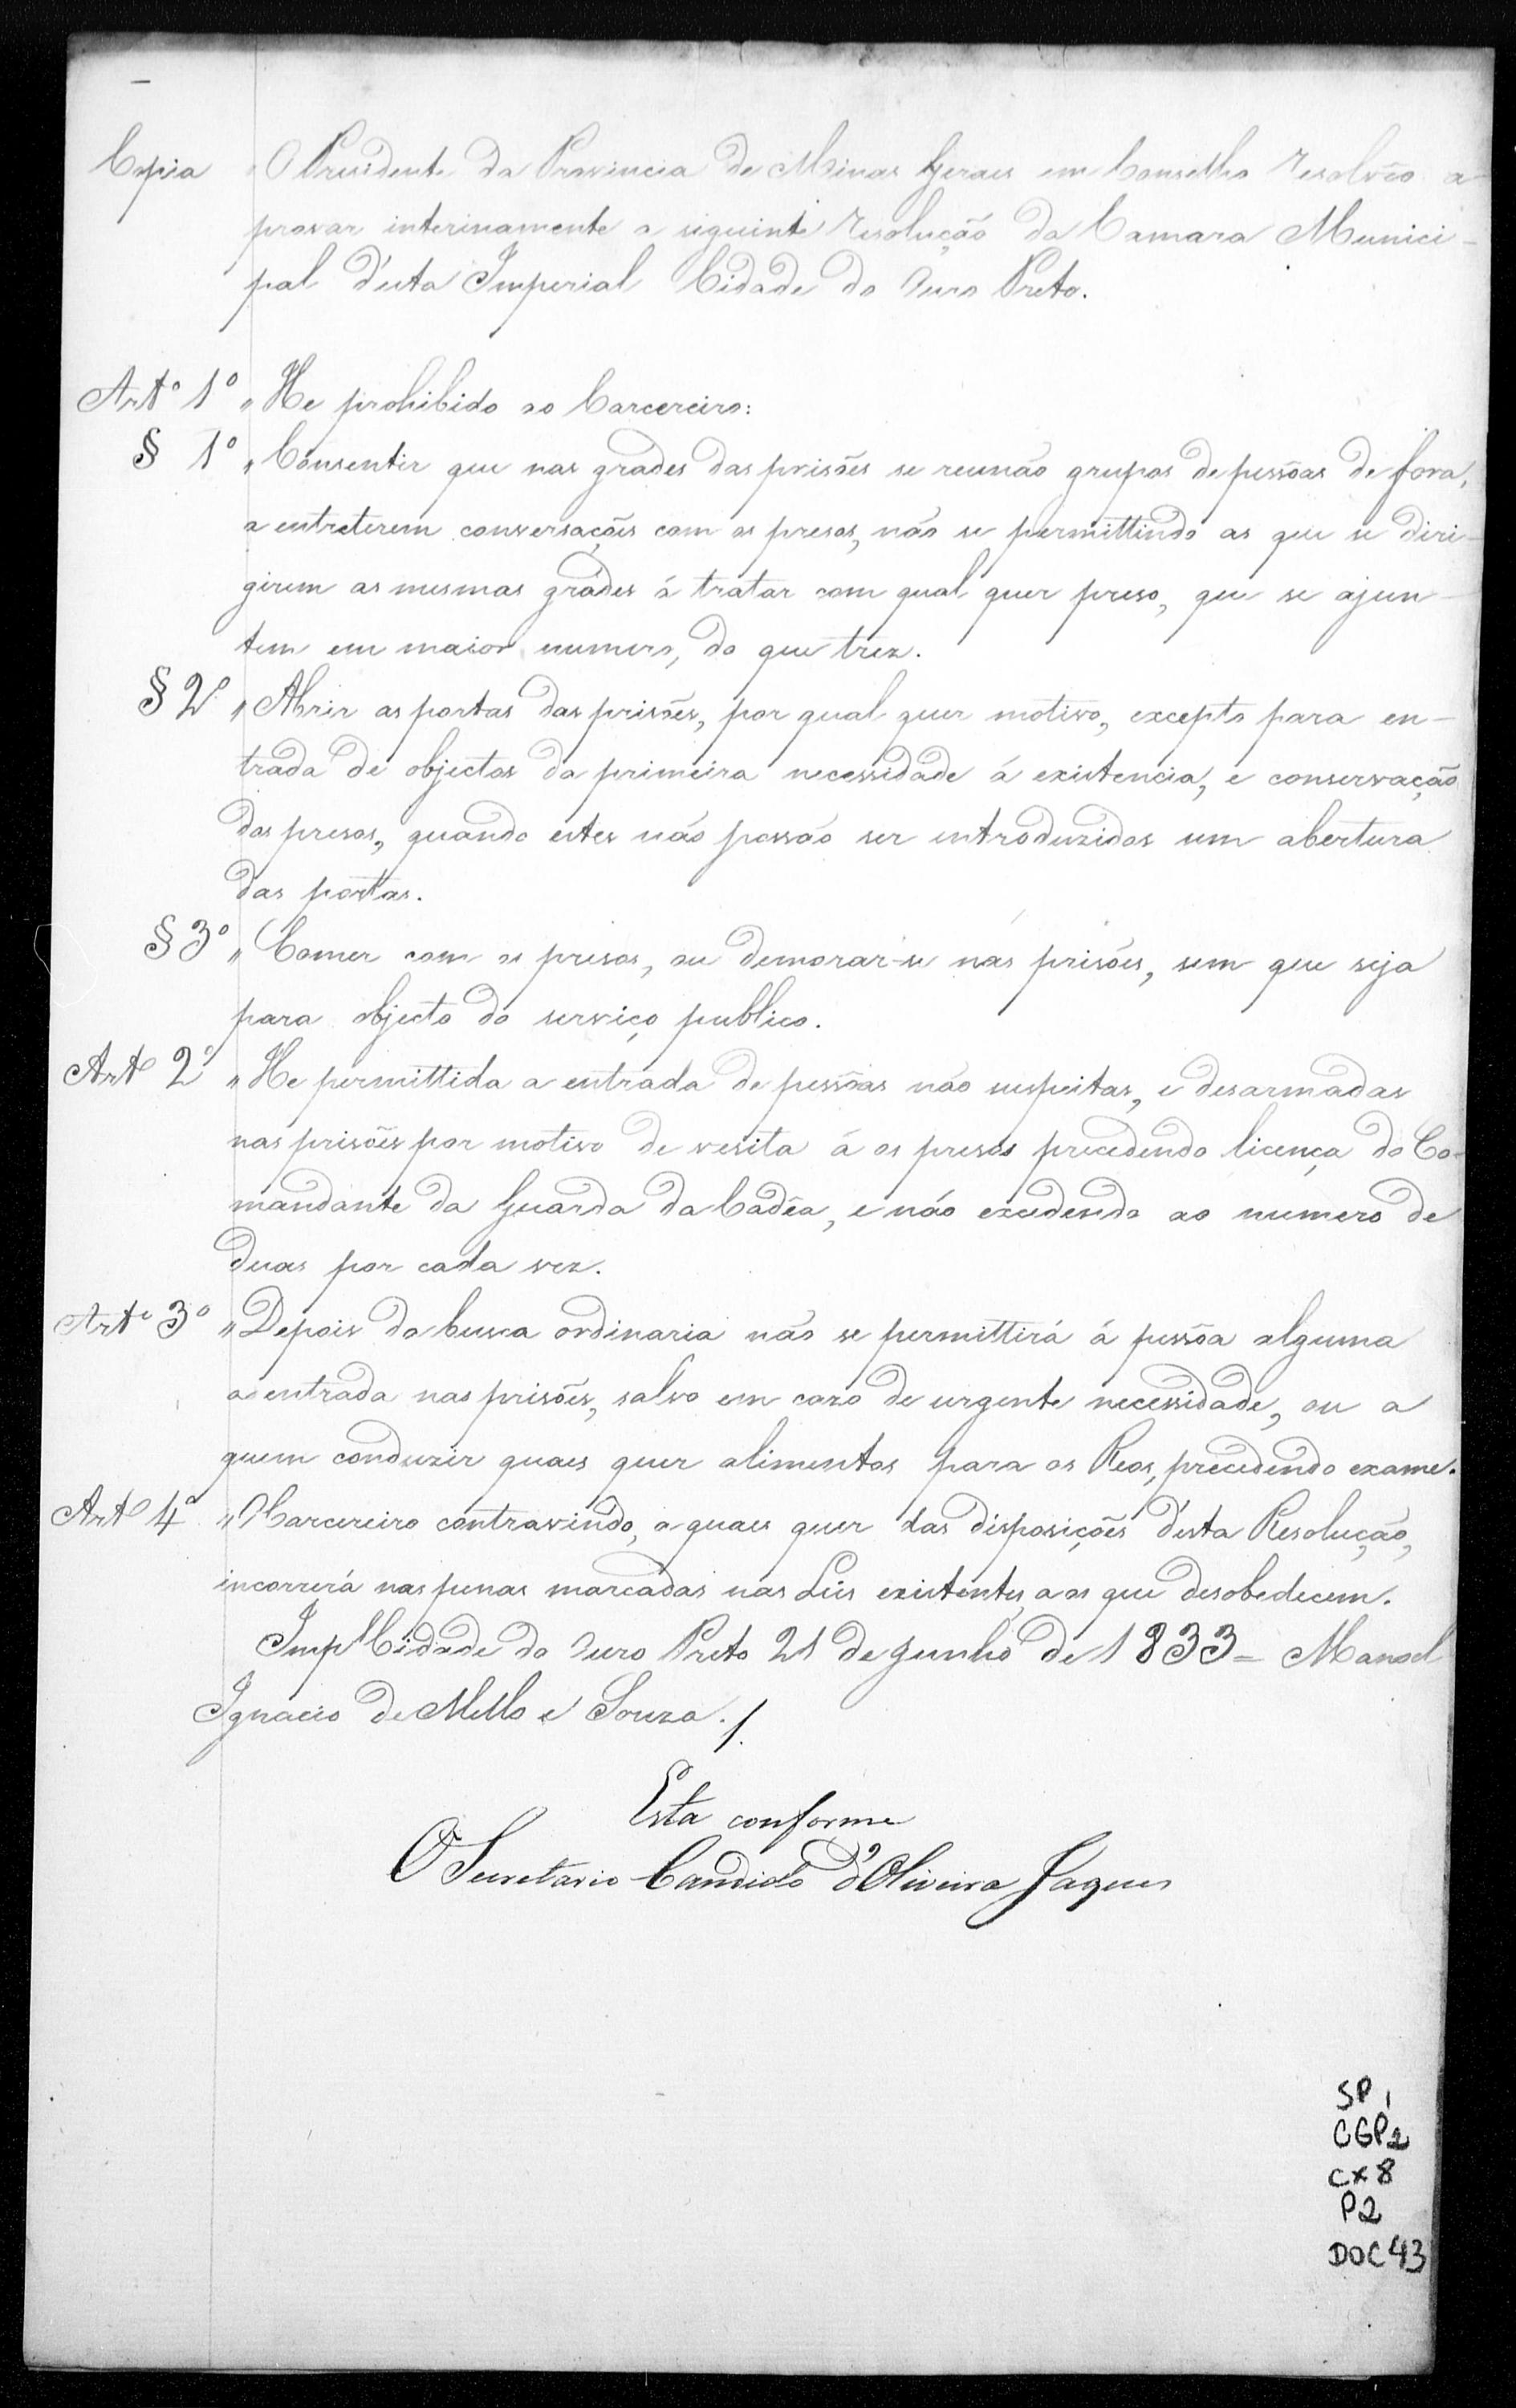 Copia O Presidente da Provincia de Minas Geraes em Conselho resolvêo a-
provar interinamente a siguinte resolução da Camara Munici-
pal d'esta Imperial Cidade do Ouro Preto.
Artº 1º " He prohibido ao Carcereiro:
§ 1º " Consentir que nas grades das prisões se reunão grupos de pessôas de fora,
a entreterem conversações com os presos, não se permittindo as que se diri-
girem as mesmas grádes á tratar com qual quer preso, que se ajun-
tem em maior numero, do que trez.
§ 2º " Abrir as portas das prisões, por qual quer motivo, excepto para en-
trada de objectos da primeira necessidade á existencia, e conservação
dos presos, quando estes não possão ser introduzidos sem abertura
das portas.
§ 3º " Comer com os presos, ou demorar-se nas prisões, sem que seja
para objecto do serviço publico.
Artº 2º " He permittida a entrada de pessôas não suspeitas, e desarmadas
nas prisões por motivo de vesita á os presos precedendo licença do Co-
mandante da Guarda da Cadêa, e não excedendo ao numero de
duas por cada vez.
Artº 3º " Depois da busca ordinaria não se permittirá á pessôa alguma
a entrada nas prisões, salvo em cazo de urgente necessidade, ou a
quem conduzir quaes quer alimentos para os Reos, precedendo exame.
Artº 4º " O Carcereiro contravindo, a quaes quer das disposições d'esta Resolução,
incorrerá nas penas marcadas nas Leis existentes, a os que desobedecem.
Impl Cidade do Ouro Preto 21 de Junho de 1833 = Manoel
Ignacio de Mello e Souza ./.
Esta conforme
O Secretario Candido d'Oliveira Jaques
SP 1
CGP2
cx 8
P2
DOC 43